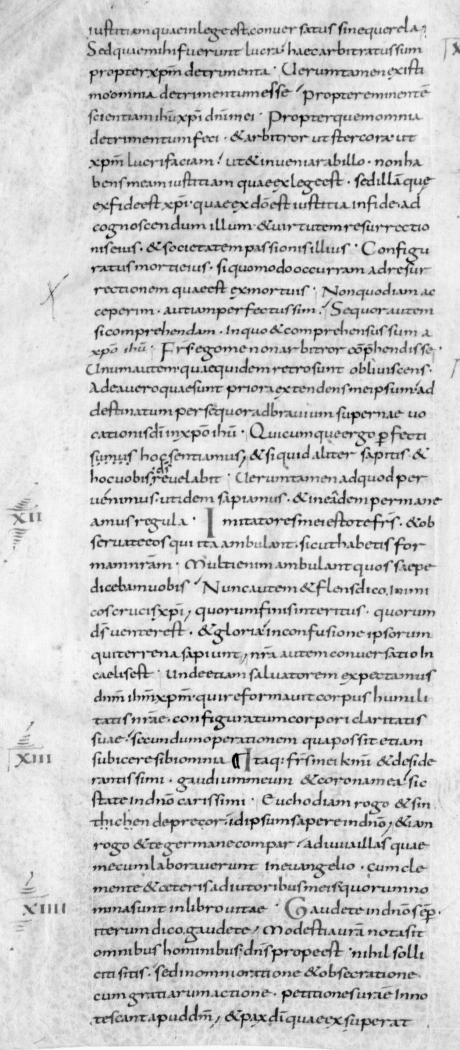 iustitiam quae in lege est conversatus sine querela;
Sed quae mihi fuerunt lucra haec arbitratus sum
propter xpm detrimenta. Verumtamen existi
mo omnia detrimentum esse propter eminentē
scientiam ihu xpi dni mei. Propter quem omnia
detrimentum feci. & arbitror ut stercora ut
xpm lucrifaciam. ut & inveniar ab illo. non ha
bens meam iustitiam quae ex lege est. sed illā quę
ex fide est xpi. quae ex dō est iustitia in fide. ad
cognoscendum illum. & virtutem resurrectio
nis eius. & societatem passionis illius. Configu
ratus morti eius. si quomodo occurram ad resur
rectionem quae est ex mortuis. Non quod iam ac
ceperim. aut iam perfectus sim. Sequor autem
si comprehendam. In quo & comprehensus sum a
xpo ihu. Frs ego me non arbitror cōphendisse.
Unum autem quae quidem retro sunt obliviscens.
Ad ea vero quae sunt priora extendens me ipsum. ad
destinatum persequor ad bravium supernae vo
cationis di in xpo ihu. Quicumque ergo pfecti
sumus hoc sentiamus, & si quid aliter sapitis. &
hoc vobis ds revelabit. Verumtamen ad quod per
venimus. ut idem sapiamus. & in eādem permane
XII amus regula. Imitatores mei estote frs. & ob
servate eos qui ita ambulant. sicut habetis for
mam nram. Multi enim ambulant quos saepe
dicebam vobis. Nunc autem & flens dico. inimi
cos crucis xpi, quorum finis interitus. quorum
ds venter est. & gloria in confusione ipsorum
qui terrena sapiunt, nra autem conversatio in
caelis est. Unde etiam salvatorem expectamus
dnm ihm xpm. qui reformavit corpus humili
tatis nrae. configuratum corpori claritatis
suae. secundum operationem qua possit etiam
XIII subicere sibi omnia Itaq; frs mei kmi & deside
rantissimi. gaudium meum & corona mea. sic
state in dno carissimi. Euchodiam rogo & sin
thichen deprecor. id ipsum sapere in dno, & iam
rogo & te germane compar. adiuva illas quae
mecum laboraverunt in evangelio. cum cle
mente & ceteris adiutoribus meis quorum no
XIIII mina sunt in libro vitae. Gaudete in dno sēp.
iterum dico, gaudete, Modestia vra nota sit
omnibus hominibus. dns prope est. nihil solli
citi sitis. sed in omni oratione & obsecratione
cum gratiarum actione. petitiones vrae inno
tescant apud dm, & pax di quae exsuperat